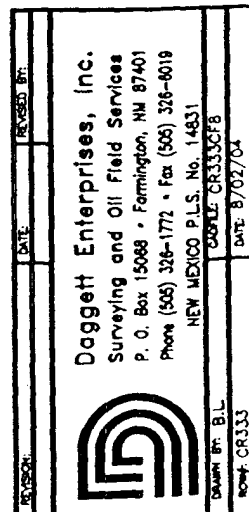 REVISION: DATE: REVISED BY:
Daggett Enterprises, Inc.
Surveying and Oil Field Services
P. O. Box 15068 • Farmington, NM 87401
Phone (505) 326-1772 • Fax (505) 326-6019
NEW MEXICO P.L.S. No. 14831
DRAWN BY: B.L. CADFILE: CR333CF8
ROW#: CR333 DATE: 8/02/04